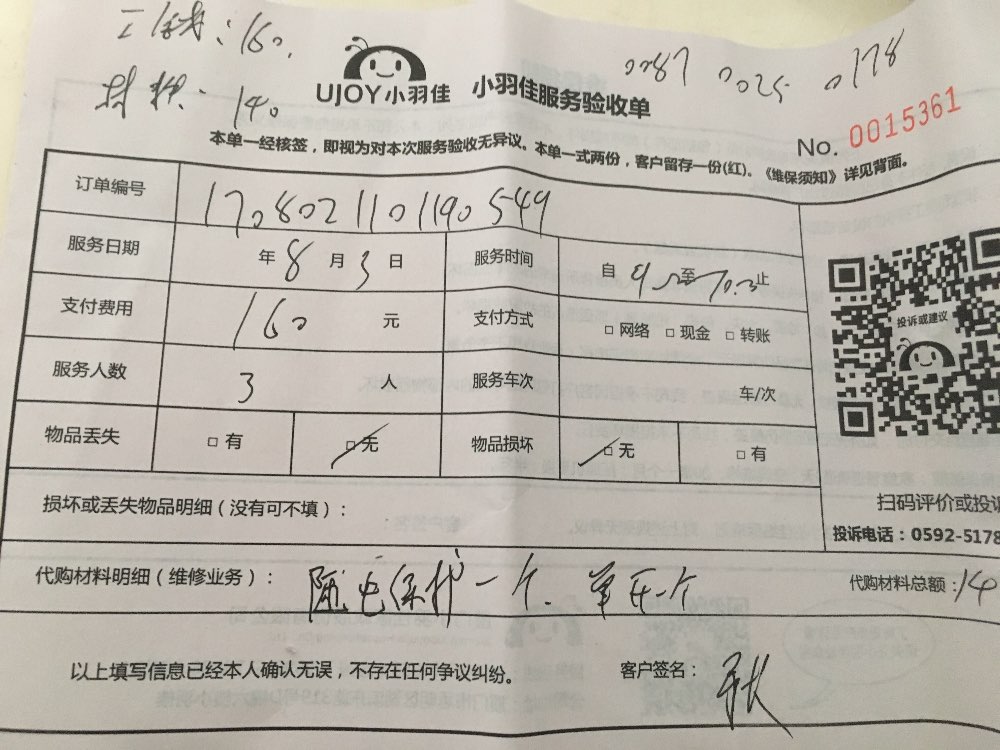 工钱：160.
材料：140
UJOY小羽佳 小羽佳服务验收单
0287 0025 0178
No. 0015361
本单一经核签，即视为对本次服务验收无异议。本单一式两份，客户留存一份(红)。《维保须知》详见背面。
订单编号 1708021101190549
服务日期 年8月3日 服务时间 自 至 止
支付费用 160 元 支付方式 □ 网络 □ 现金 □ 转账
服务人数 3 人 服务车次 车/次
物品丢失 □ 有 □ 无 物品损坏 □ 无 □ 有
投诉或建议
损坏或丢失物品明细（没有可不填）：
扫码评价或投诉
投诉电话：0592-5178
代购材料明细（维修业务）： 漏电保护一个. 单开一个
代购材料总额：140
以上填写信息已经本人确认无误，不存在任何争议纠纷。 客户签名：